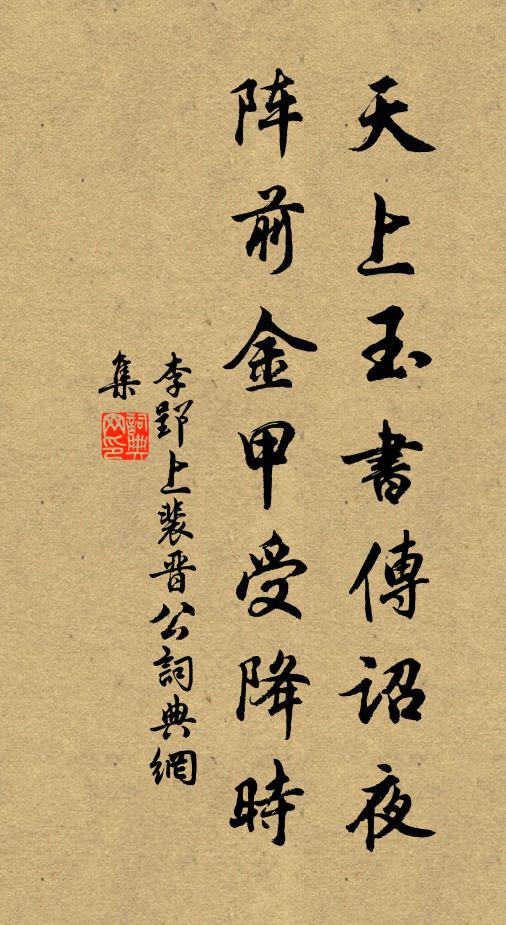 天上玉書傳詔夜
阵前金甲受降時
李郢上裴晋公詞典網
集
詞典網印